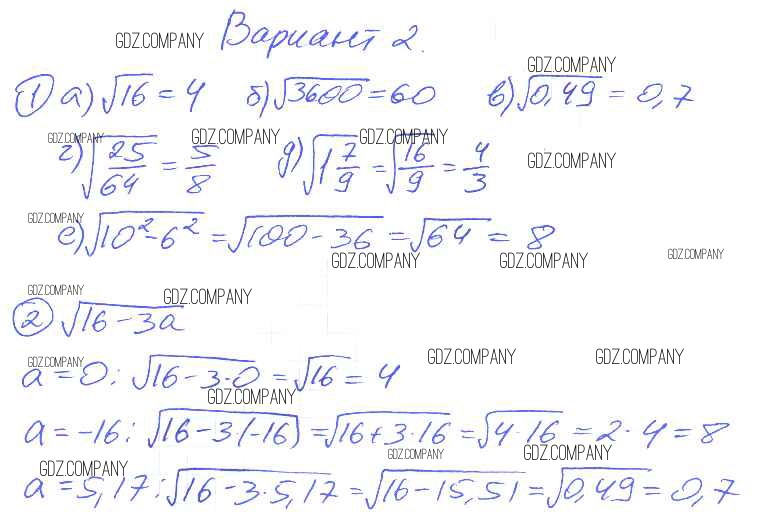 GDZ.COMPANY Вариант 2.
GDZ.COMPANY
① а) √16 = 4 б) √3600 = 60 в) √0,49 = 0,7
GDZ.COMPANY GDZ.COMPANY GDZ.COMPANY
г) √25/64 = 5/8 д) √1 7/9 = √16/9 = 4/3 GDZ.COMPANY
GDZ.COMPANY
е) √10² - 6² = √100 - 36 = √64 = 8
GDZ.COMPANY GDZ.COMPANY GDZ.COMPANY
GDZ.COMPANY GDZ.COMPANY
② √16 - 3a
GDZ.COMPANY GDZ.COMPANY GDZ.COMPANY
a = 0: √16 - 3·0 = √16 = 4
GDZ.COMPANY
a = -16: √16 - 3(-16) = √16 + 3·16 = √4·16 = 2·4 = 8
GDZ.COMPANY GDZ.COMPANY GDZ.COMPANY
a = 5,17: √16 - 3·5,17 = √16 - 15,51 = √0,49 = 0,7